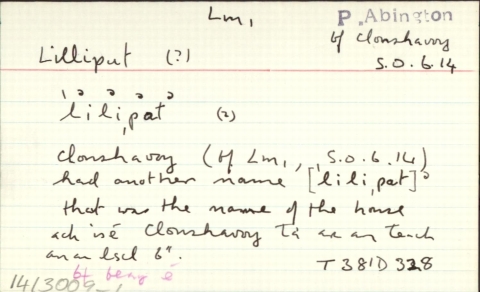 Lm,
P. Abington
bf Clonshavoy
S.O. 6.14
Lilliput (?)
lili,pat (2)
Clonshavoy (bf Lm,, S.O. 6.14)
had another name [lili,pat]
that was the name of the house
ach isé Clonshavoy tá ar an teach
ar an lscl 6".
T381D328
bf beag é
1413009_1